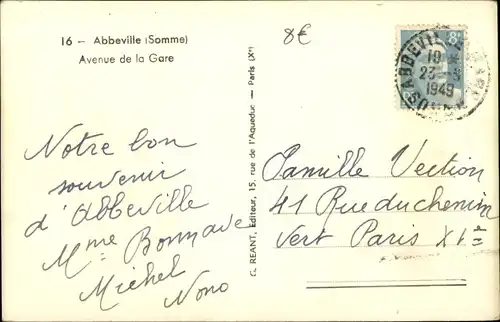 16 – Abbeville (Somme)
Avenue de la Gare
8€
8F
ABBEVILLE
10
1949
Notre bon
souvenir
d'Abbeville
Mme Bonnave
Michel
Nono
G. REANT, Editeur, 15, rue de l'Aqueduc — Paris (Xe)
Famille Vection
41 Rue du chemin
vert Paris XIe